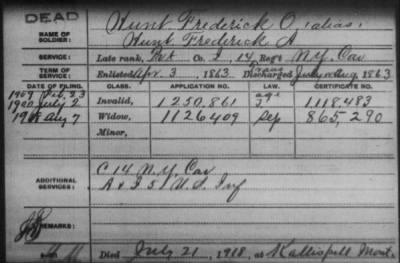 DEAD
NAME OF SOLDIER:
Hunt Frederick O. (alias)
Hunt, Frederick A
SERVICE:
Late rank, Pvt Co. I, 14 Reg't N.Y. Cav
TERM OF SERVICE:
Enlisted Apr. 3, 1863. Discharged Aug, 1863
DATE OF FILING. CLASS. APPLICATION NO. LAW. CERTIFICATE NO.
1907 Feb. 23 age
1900 July 2 Invalid, 1250,861 1,118,483
1918 Aug 7 Widow, 1126409 Sep 865,290
Minor,
ADDITIONAL SERVICES:
C 14 N.Y. Cav
A & I 51 U.S. Inf
REMARKS:
Died July 21, 1918, at Kallispell Mont.